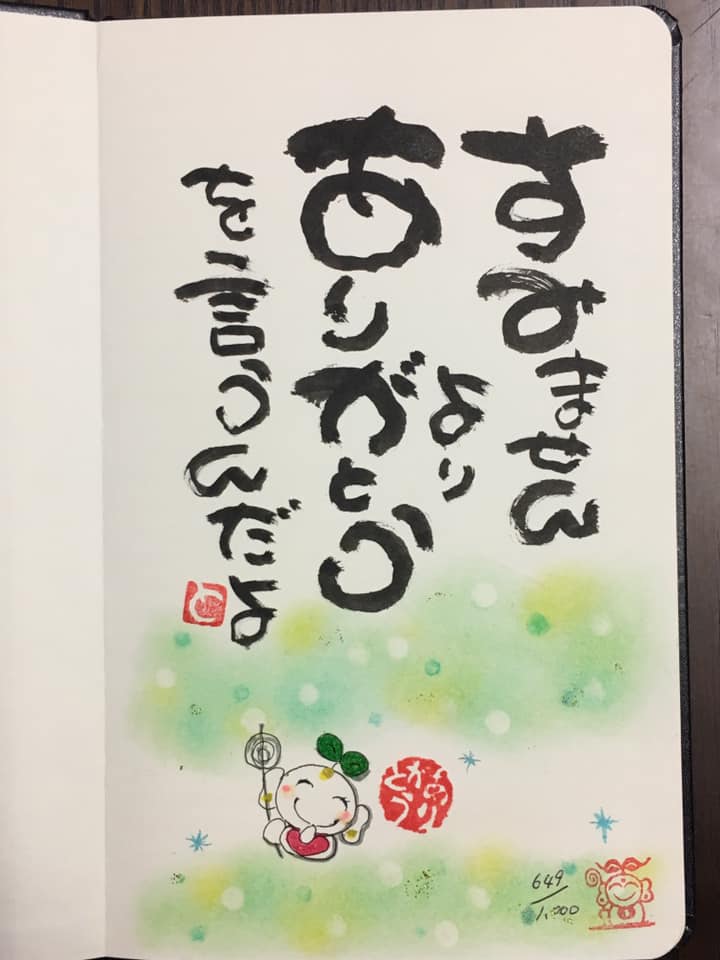 すみません
より
ありがとう
を言うんだよ
ありがとう
649/1,000